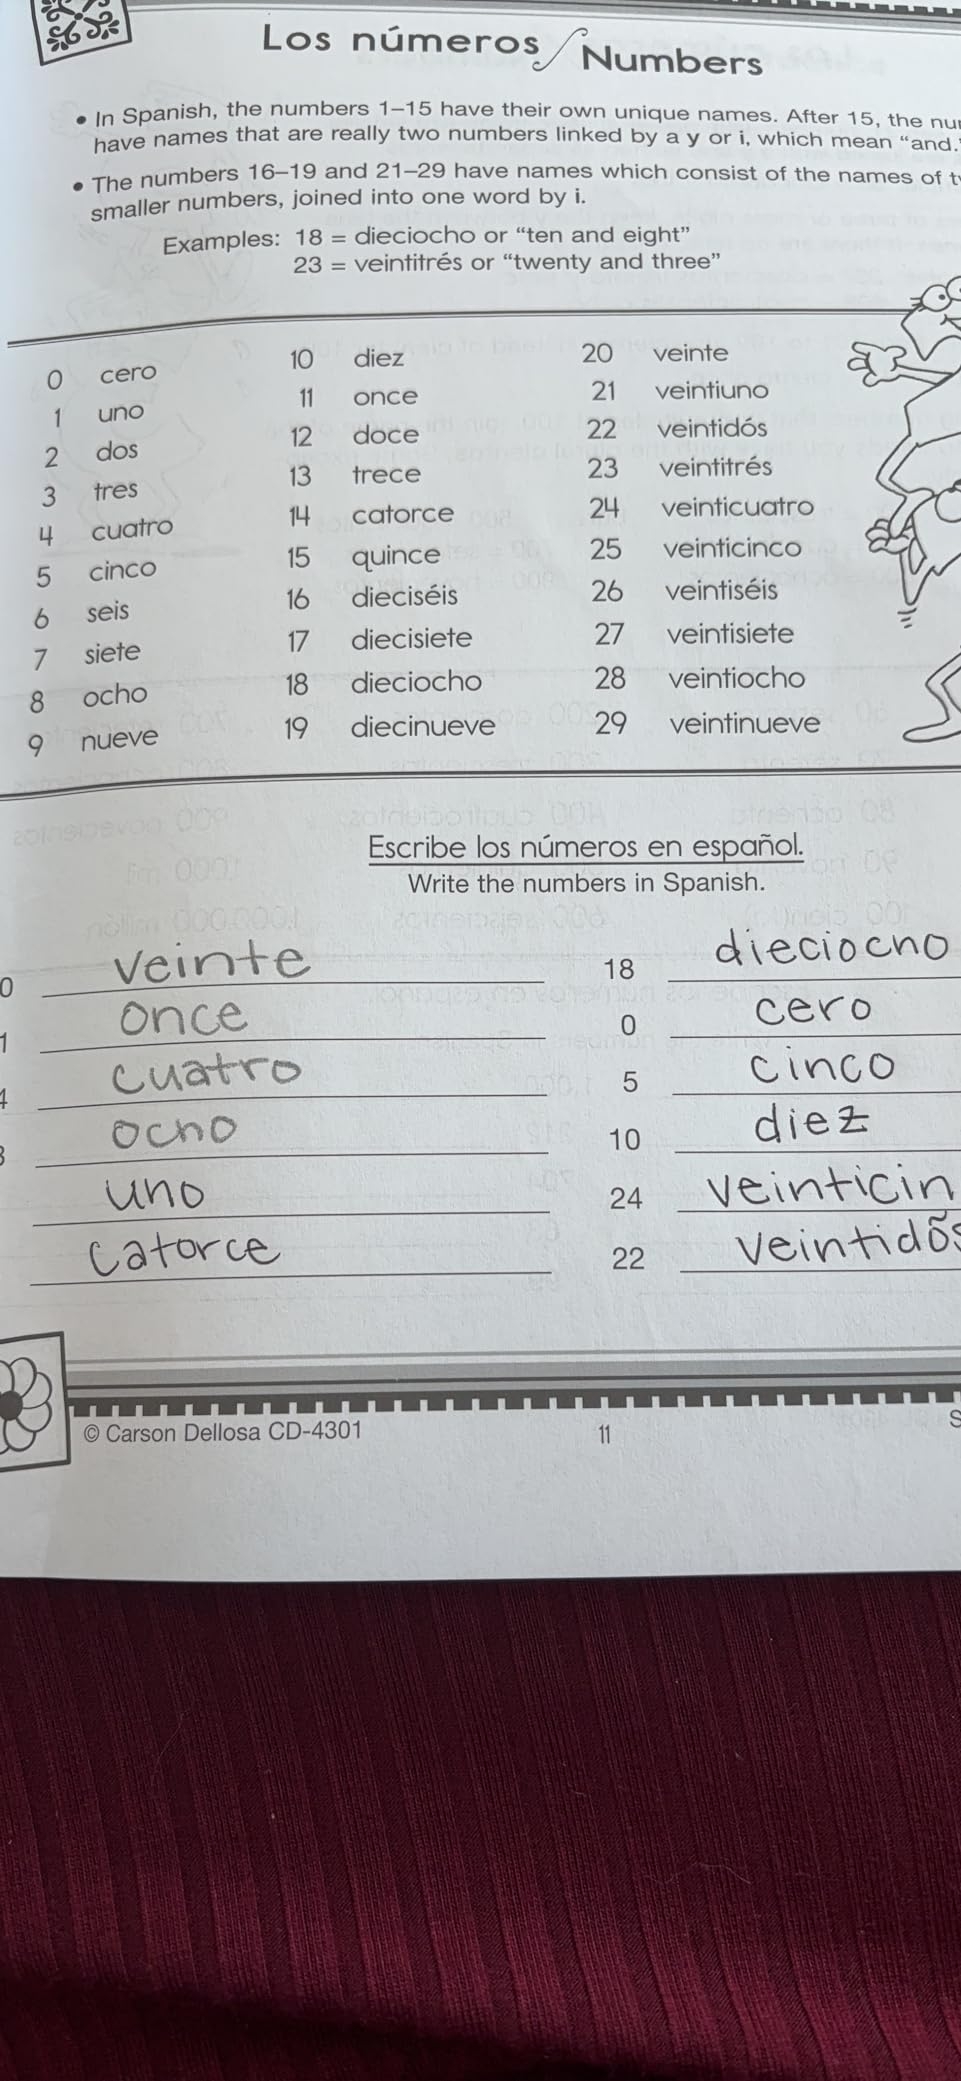 Los números / Numbers
• In Spanish, the numbers 1–15 have their own unique names. After 15, the
have names that are really two numbers linked by a y or i, which mean “and.
• The numbers 16–19 and 21–29 have names which consist of the names of
smaller numbers, joined into one word by i.
Examples: 18 = dieciocho or “ten and eight”
23 = veintitrés or “twenty and three”
0 cero 10 diez 20 veinte
1 uno 11 once 21 veintiuno
2 dos 12 doce 22 veintidós
3 tres 13 trece 23 veintitrés
4 cuatro 14 catorce 24 veinticuatro
5 cinco 15 quince 25 veinticinco
6 seis 16 dieciséis 26 veintiséis
7 siete 17 diecisiete 27 veintisiete
8 ocho 18 dieciocho 28 veintiocho
9 nueve 19 diecinueve 29 veintinueve
Escribe los números en español.
Write the numbers in Spanish.
0 veinte 18 dieciocho
1 once 0 cero
4 cuatro 5 cinco
ocho 10 diez
uno 24 veinticin
catorce 22 veintidós
© Carson Dellosa CD-4301 11